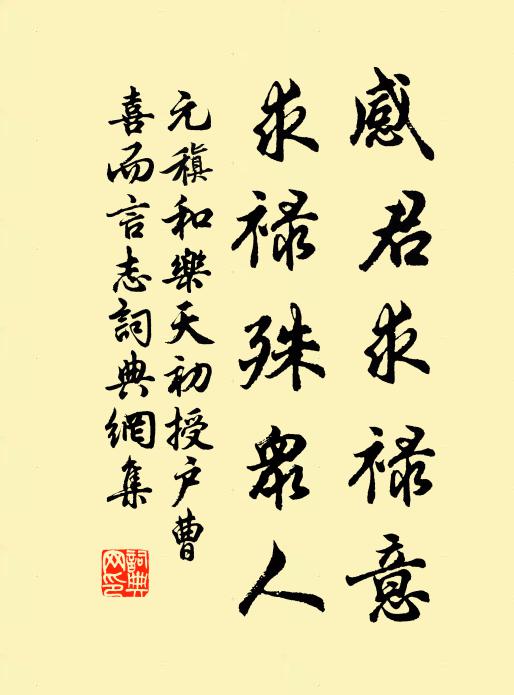 感君求禄意
求禄殊眾人
元稹和樂天初授户曹
喜而言志詞典網集
詞典
网印